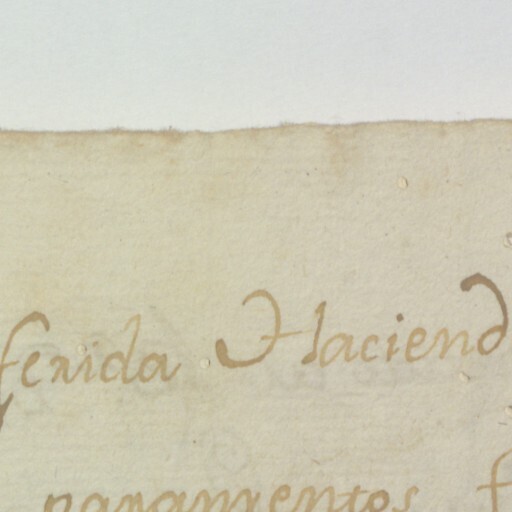 ferida Haciend
paramentos f